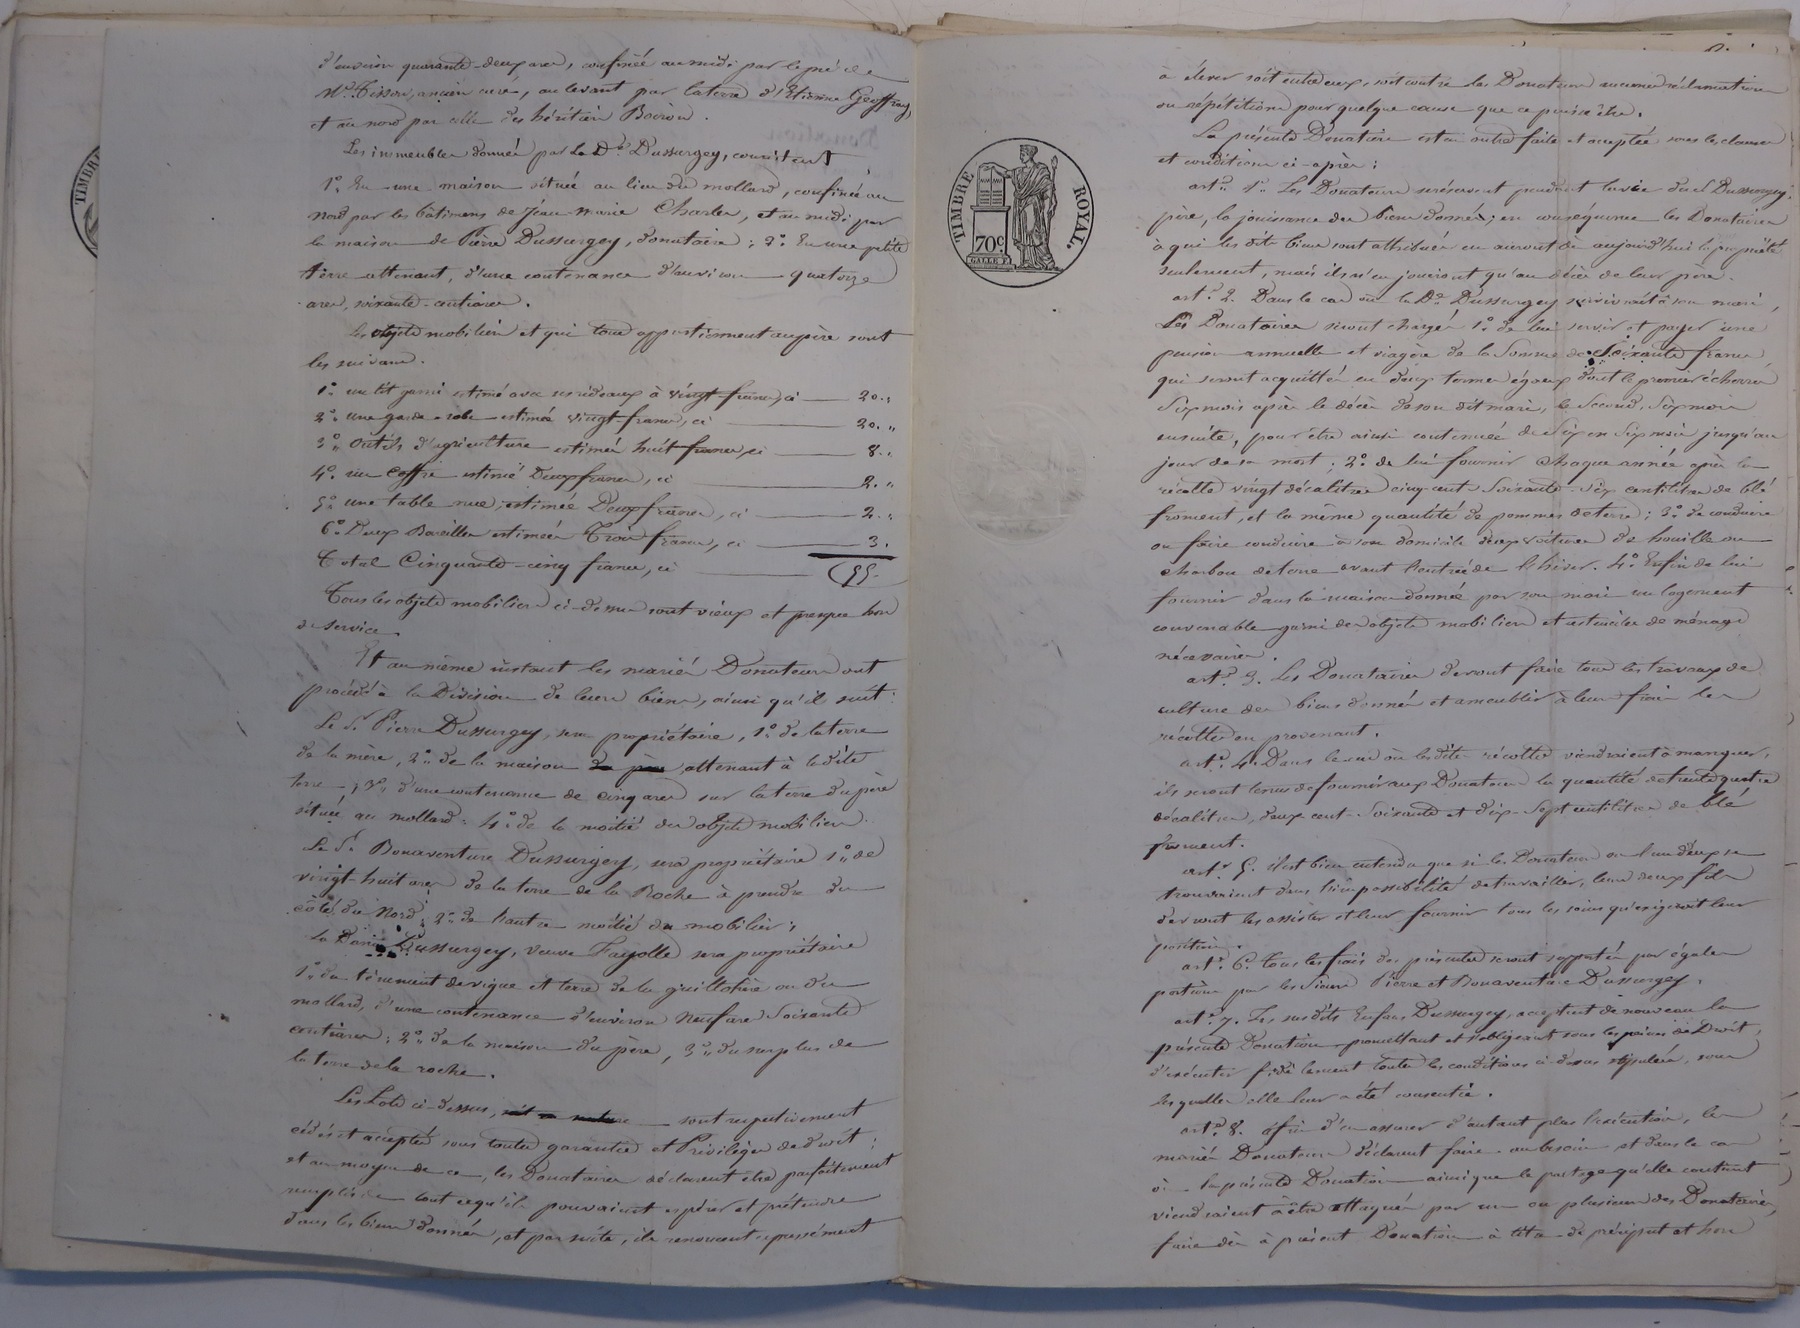 d'environ quarante-deux ares, confinée au midi par le pré de
Mr Tisson, ancien curé, au levant par la terre d'Etienne Geoffray,
et au nord par celle des héritiers Boiron.
Les immeubles donnés par le Sr Dussurgey, consistent
1º. En une maison située au lieu du mollard, confinée au
nord par les bâtimens de Jean-Marie Charles, et au midi par
la maison de Pierre Dussurgey, donataire; 2º. En une petite
terre attenant, d'une contenance d'environ quatorze
ares, soixante centiares.
Les objets mobiliers et qui tous appartiennent au père sont
les suivans.
1º. un lit garni estimé avec ses rideaux à vingt francs, ci — 20. "
2º. une garde-robe estimée vingt francs, ci — 20. "
3º. Outils d'agriculture estimés huit francs, ci — 8. "
4º. un coffre estimé Deux francs, ci — 2. "
5º. une table estimée Deux francs, ci — 2. "
6º. Deux Bareilles estimées Trois francs, ci — 3.
Total Cinquante-cinq francs, ci — 55.
Tous les objets mobiliers ci-dessus sont vieux et presque hors
de service.
Et au même instant les mariés Donateurs ont
procédé à la Division de leurs biens, ainsi qu'il suit:
Le Sr Pierre Dussurgey, sera propriétaire, 1º. de la terre
de la mère, 2º. de la maison du père attenant à ladite
terre; 3º. d'une contenance de cinq ares sur la terre du père
située au mollard; 4º. de la moitié des objets mobiliers.
Le Sr Bonaventure Dussurgey, sera propriétaire 1º. de
vingt-huit ares de la terre de la Roche à prendre du
côté du Nord; 2º. de l'autre moitié du mobilier;
La Dame Dussurgey, veuve Fayolle sera propriétaire
1º. du tènement de vigne et terre de la guillotière ou du
mollard, d'une contenance d'environ Neuf ares Soixante
centiares; 2º. de la maison du père, 3º. du surplus de
la terre de la roche.
Les Lots ci-dessus, sont respectivement
cédés et acceptés sous toutes garanties et Privilèges de droit;
et au moyen de ce, les Donataires déclarent être parfaitement
remplis de tout ce qu'ils pouvaient espérer et prétendre
dans les biens donnés, et par suite, ils renoncent expressément
TIMBRE ROYAL.
70c
à élever soit entre eux, soit contre les Donateurs aucune réclamation
ou répétition pour quelque cause que ce puisse être.
La présente Donation est en outre faite et acceptée sous les clauses
et conditions ci-après:
art. 1er. Les Donateurs se réservent pendant la vie du Sr Dussurgey
père, la jouissance des biens donnés; en conséquence les Donataires
à qui les dits biens sont attribués en auront dès aujourd'hui la propriété
seulement, mais ils n'en jouiront qu'au décès de leur père.
art. 2. Dans le cas où la De Dussurgey survivrait à son mari,
Les Donataires seront chargés 1º. de lui servir et payer une
pension annuelle et viagère de la Somme de Soixante francs
qui seront acquittés en deux termes égaux dont le premier écherra
Six mois après le décès de son dit mari, le Second, Six mois
ensuite, pour être ainsi continuée de Six en Six mois jusqu'au
jour de sa mort; 2º. de lui fournir chaque année après la
récolte vingt décalitres cinq cent-Soixante-Six centilitres de blé
froment, et la même quantité de pommes de terre; 3º. de conduire
ou faire conduire à son domicile deux voitures de houille ou
charbon de terre avant l'entrée de l'hiver. 4º. Enfin de lui
fournir dans la maison donnée par son mari un logement
convenable garni des objets mobiliers et ustenciles de ménage
nécessaires.
art. 3. Les Donataires devront faire tous les travaux de
culture des biens donnés et ameublir à leurs frais les
récoltes en provenant.
art. 4. Dans le cas où les dites récoltes viendraient à manquer,
ils seront tenus de fournir aux Donateurs la quantité de trente quatre
décalitres, deux cent-Soixante et dix-Sept centilitres de blé
froment.
art. 5. il est bien entendu que si les Donateurs ou l'un d'eux se
trouvaient dans l'impossibilité de travailler, leurs deux fils
devront les assister et leur fournir tous les soins qu'exigerait leur
position.
art. 6. tous les frais des présentes seront supportés par égales
portions par les Sieurs Pierre et Bonaventure Dussurgey.
art. 7. Les susdits Enfans Dussurgey, acceptent de nouveau la
présente Donation promettant et s'obligeant sous les peines de Droit,
d'exécuter fidèlement toutes les conditions ci-dessus stipulées, sous
lesquelles elle leur a été consentie.
art. 8. afin d'en assurer d'autant plus l'exécution, les
mariés Donateurs déclarent faire au besoin et dans le cas
où la présente Donation ainsi que le partage qu'elle contient
viendraient à être attaqués par un ou plusieurs des Donataires,
faire dès à présent Donation à titre de préciput et hors